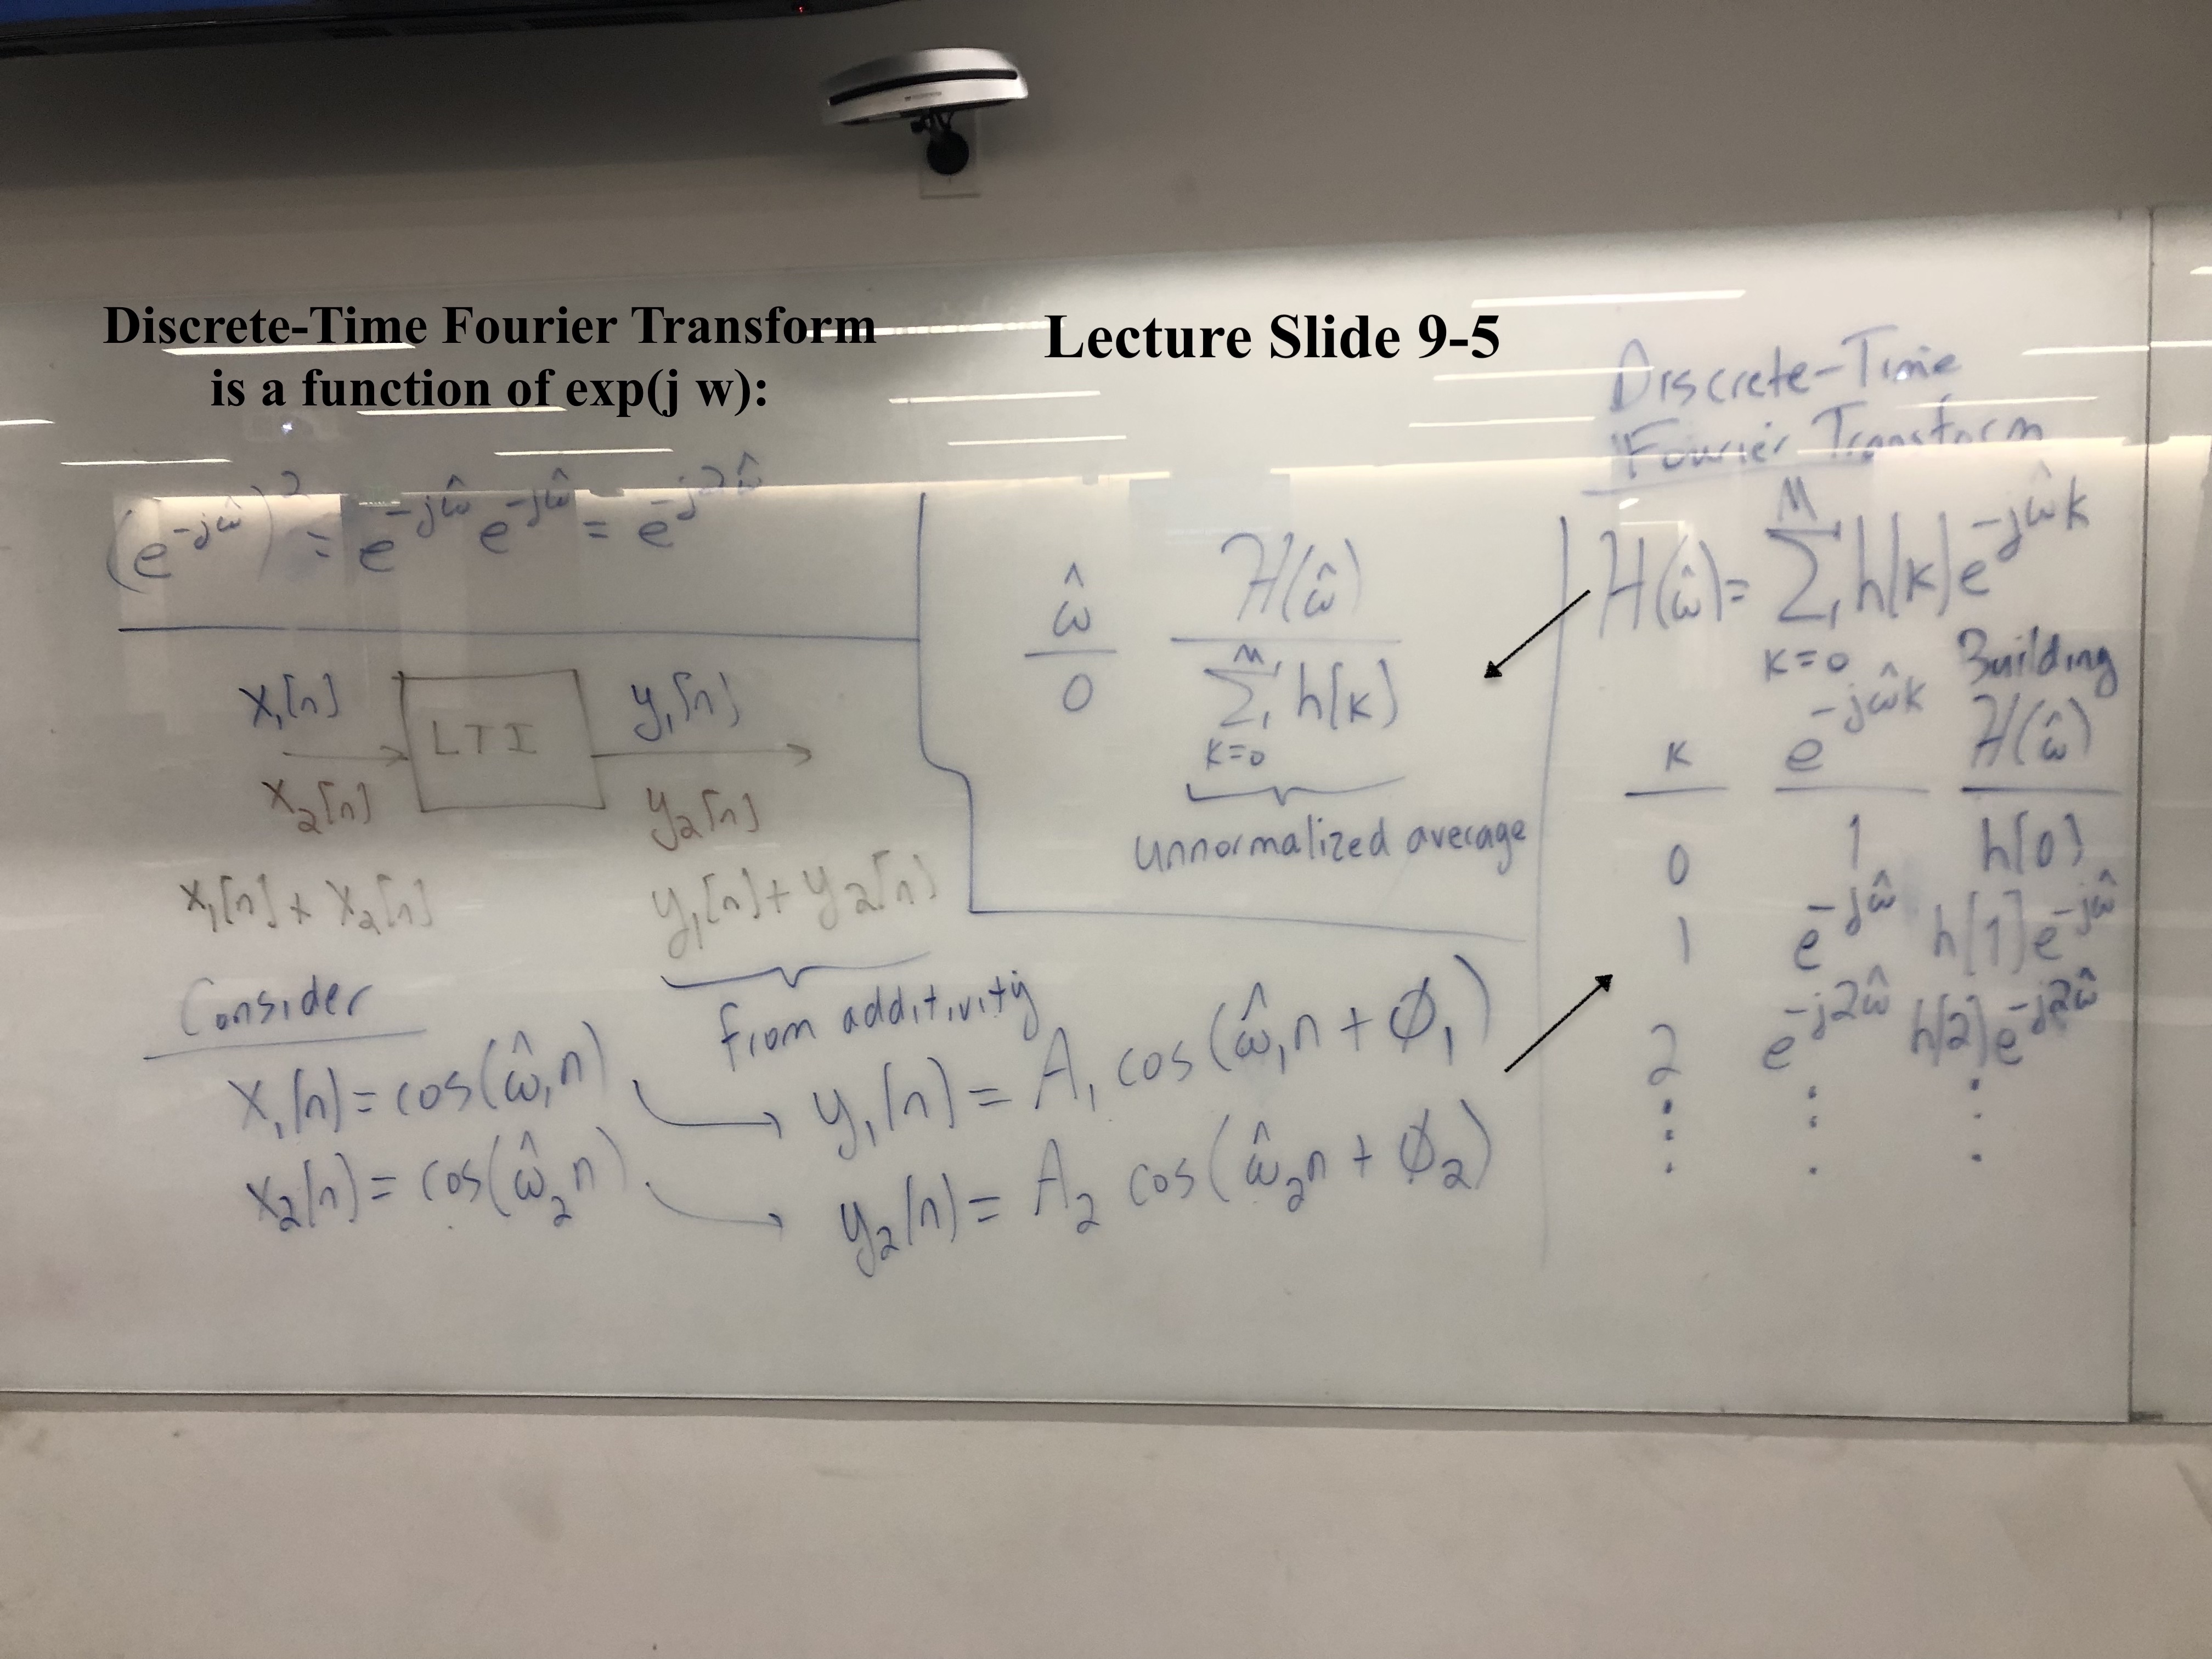 Discrete-Time Fourier Transform
is a function of exp(j w):
(e^{-jω̂})^2 = e^{-jω̂} e^{-jω̂} = e^{-j2ω̂}
x₁[n] LTI y₁[n]
x₂[n] y₂[n]
x₁[n] + x₂[n] y₁[n] + y₂[n]
from additivity
Consider
x₁[n] = cos(ω̂₁n) y₁[n] = A₁ cos(ω̂₁n + ϕ₁)
x₂[n] = cos(ω̂₂n) y₂[n] = A₂ cos(ω̂₂n + ϕ₂)
Lecture Slide 9-5
ω̂ H(ω̂)
0 ∑_{k=0}^{M} h[k]
unnormalized average
Discrete-Time
Fourier Transform
H(ω̂) = ∑_{k=0}^{M} h[k] e^{-jω̂k}
Building
k e^{-jω̂k} H(ω̂)
0 1 h[0]
1 e^{-jω̂} h[1]e^{-jω̂}
2 e^{-j2ω̂} h[2]e^{-j2ω̂}
⋮ ⋮ ⋮